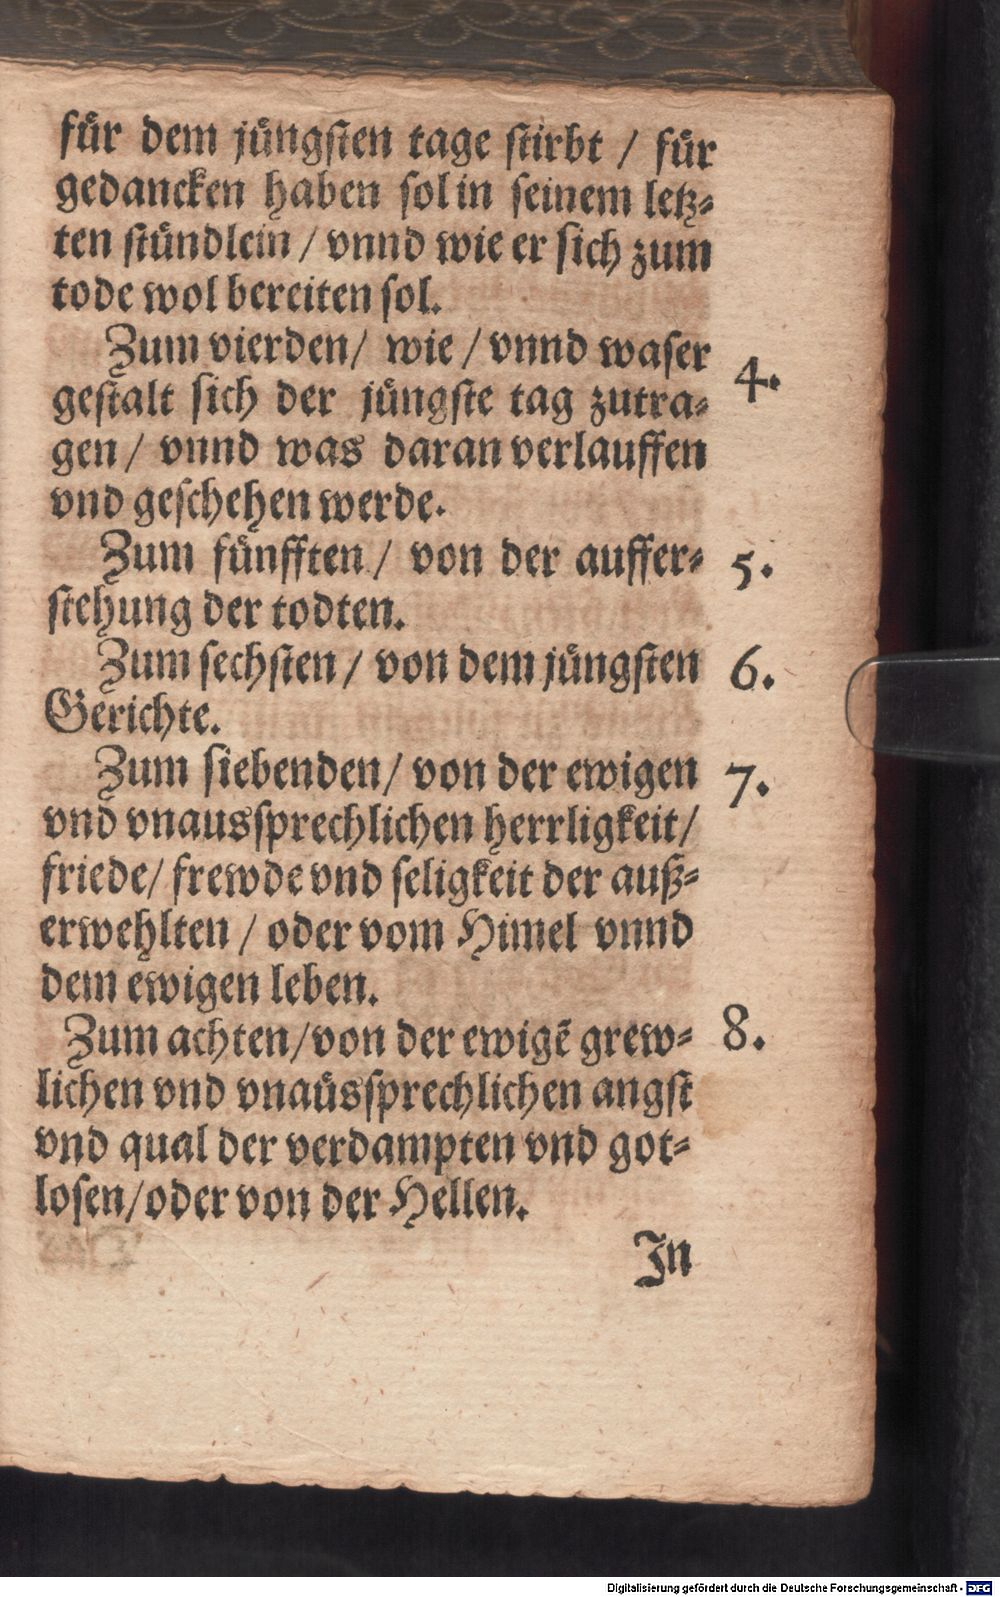 für dem jüngsten tage stirbt / für
gedancken haben sol in seinem letz-
ten stündlein / vnnd wie er sich zum
tode wol bereiten sol.
Zum vierden / wie / vnnd waser
4.
gestalt sich der jüngste tag zutra-
gen / vnnd was daran verlauffen
vnd geschehen werde.
Zum fünfften / von der auffer-
5.
stehung der todten.
Zum sechsten / von dem jüngsten
6.
Gerichte.
Zum siebenden / von der ewigen
7.
vnd vnaussprechlichen herrligkeit /
friede / frewde vnd seligkeit der auß-
erwehlten / oder vom Himel vnnd
dem ewigen leben.
Zum achten / von der ewigē grew-
8.
lichen vnd vnaüssprechlichen angst
vnd qual der verdampten vnd got-
losen / oder von der Hellen.
In
Digitalisierung gefördert durch die Deutsche Forschungsgemeinschaft - DFG